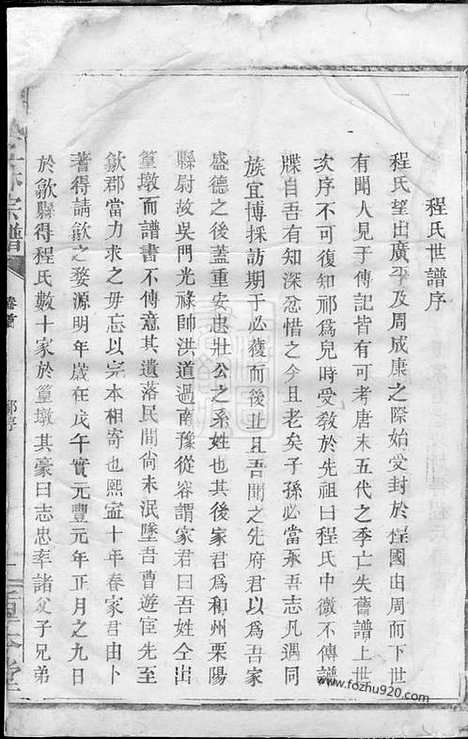 程氏世譜序
程氏望出廣平及周成康之際始受封於程國由周而下世
有聞人見于傳記皆有可考唐末五代之季亡失舊譜上世
次序不可復知祁爲兒時受敎於先祖曰程氏中微不傳譜
牒自吾有知深忿惜之今且老矣子孫必當承吾志凡遇同
族宜博採訪期于必獲而後止且吾聞之先府君以爲吾家
盛德之後蓋重安忠壯公之系姓也其後家君爲和州栗陽
縣尉故吳門光祿師洪道過南豫從容謂家君曰吾姓仝出
篁墩而譜書不傳意其遺落民間尙未泯墜吾曹遊宦先至
歙郡當力求之毋忘以完本相寄也熙寧十年春家君由卜
蓍得請歙之婺源明年歲在戊午實元豐元年正月之九日
於歙縣得程氏數十家於篁墩其豪曰志忠率諸父子兄弟
宗譜
卷首
www.fozhu920.com